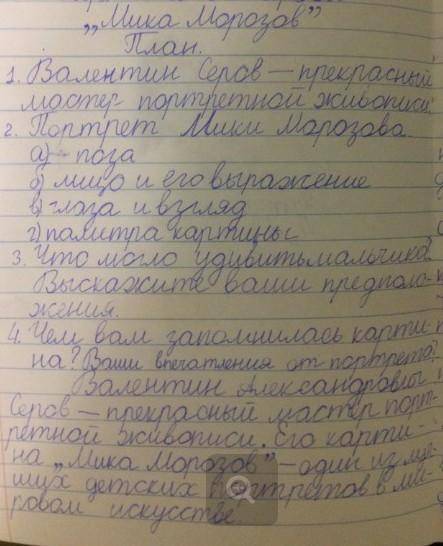 „Мика Морозов”
План.
1. Валентин Серов — прекрасный
мастер портретной живописи.
2. Портрет Мики Морозова
а) поза
б) лицо и его выражение
в) глаза и взгляд
г) палитра картины
3. Что могло удивить мальчика?
Выскажите ваши предполо-
жения.
4. Чем вам запомнилась карти-
на? Ваши впечатления от портрета?
Валентин Александрович
Серов — прекрасный мастер порт-
ретной живописи. Его карти-
на „Мика Морозов” — один из луч-
ших детских портретов в ми-
ровом искусстве.